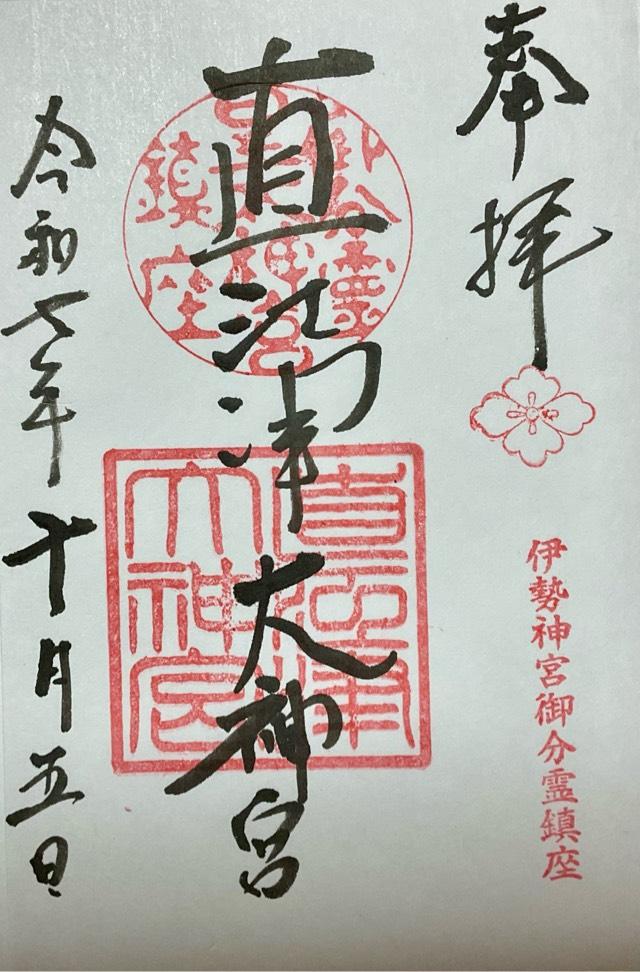 奉拝
伊勢神宮御分霊鎮座
直江津大神宮
直江津
大神宮
令和七年十月五日